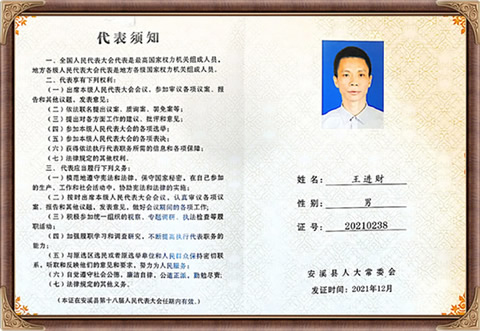 代表须知
一、全国人民代表大会代表是最高国家权力机关组成人员，
地方各级人民代表大会代表是地方各级国家权力机关组成人员。
二、代表享有下列权利：
（一）出席本级人民代表大会会议，参加审议各项议案、报
告和其他议题，发表意见；
（二）依法联名提出议案、质询案、罢免案等；
（三）提出对各方面工作的建议、批评和意见；
（四）参加本级人民代表大会的各项选举；
（五）参加本级人民代表大会的各项表决；
（六）获得依法执行代表职务所需的信息和各项保障；
（七）法律规定的其他权利。
三、代表应当履行下列义务：
（一）模范地遵守宪法和法律，保守国家秘密，在自己参加
的生产、工作和社会活动中，协助宪法和法律的实施；
（二）按时出席本级人民代表大会会议，认真审议各项议
案、报告和其他议题，发表意见，做好会议期间的各项工作；
（三）积极参加统一组织的视察、专题调研、执法检查等履
职活动；
（四）加强履职学习和调查研究，不断提高执行代表职务的能
力；
（五）与原选区选民或者原选举单位和人民群众保持密切联
系，听取和反映他们的意见和要求，努力为人民服务；
（六）自觉遵守社会公德，廉洁自律，公道正派，勤勉尽责；
（七）法律规定的其他义务。
（本证在安溪县第十八届人民代表大会任期内有效。）
姓名：王进财
性别：男
证号：20210238
安溪县人大常委会
发证时间：2021年12月